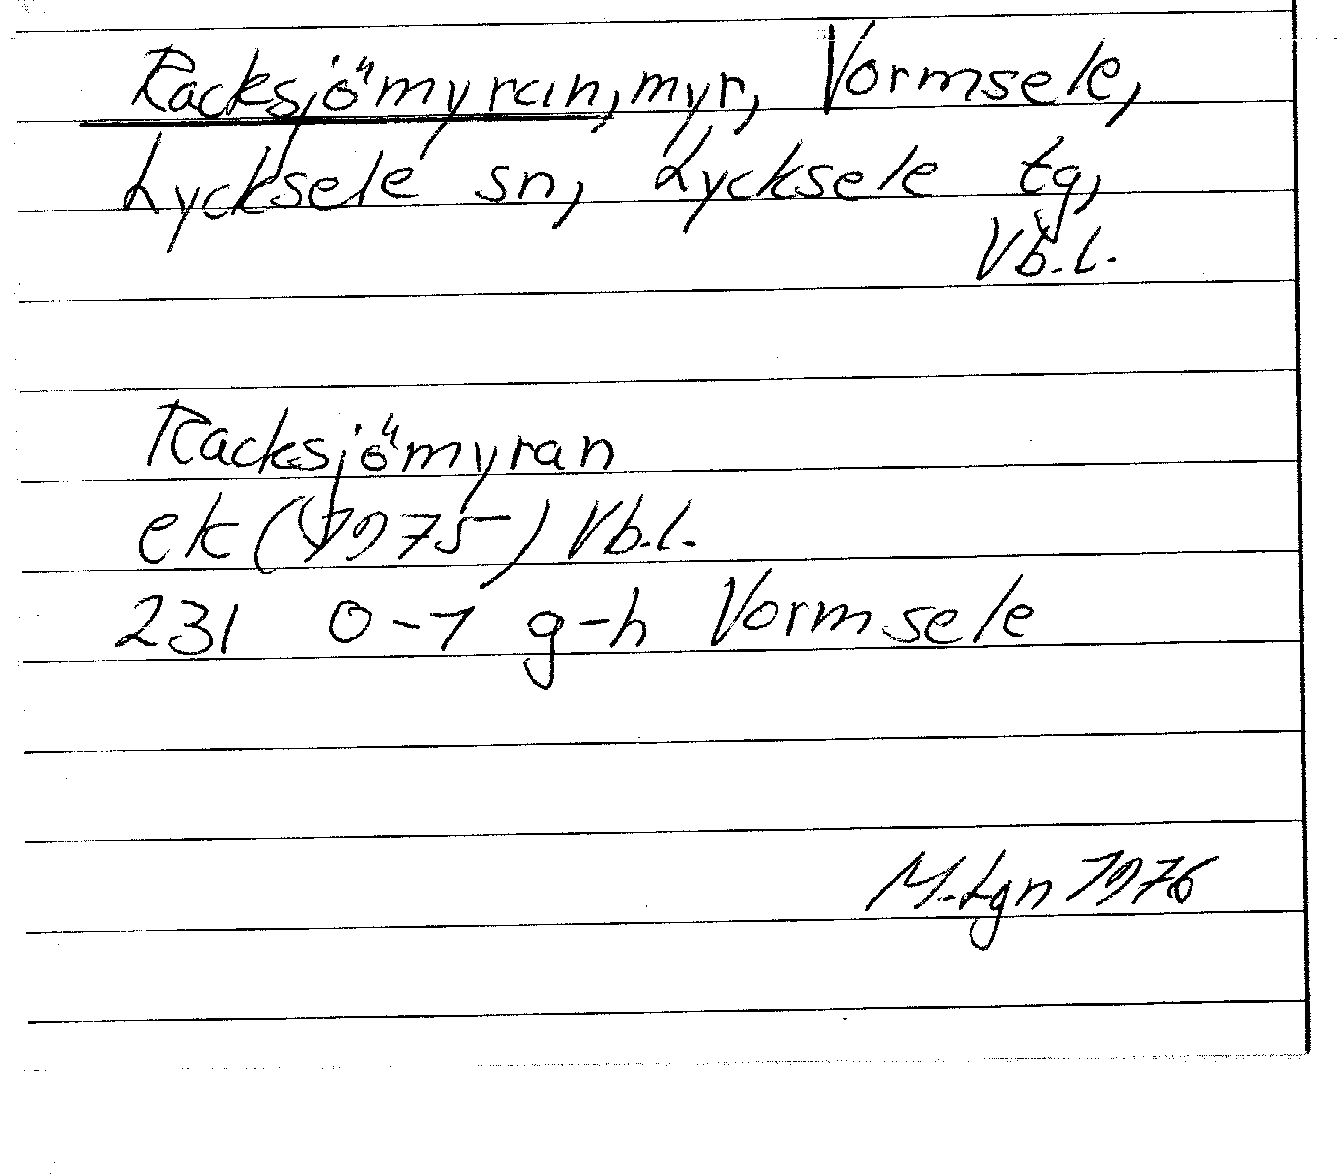 Racksjömyran, myr, Vormsele,
Lycksele sn, Lycksele tg,
Vb.l.
Racksjömyran
ek (1975) Vb.l.
231 0-1 g-h Vormsele
M. Lgn 1976